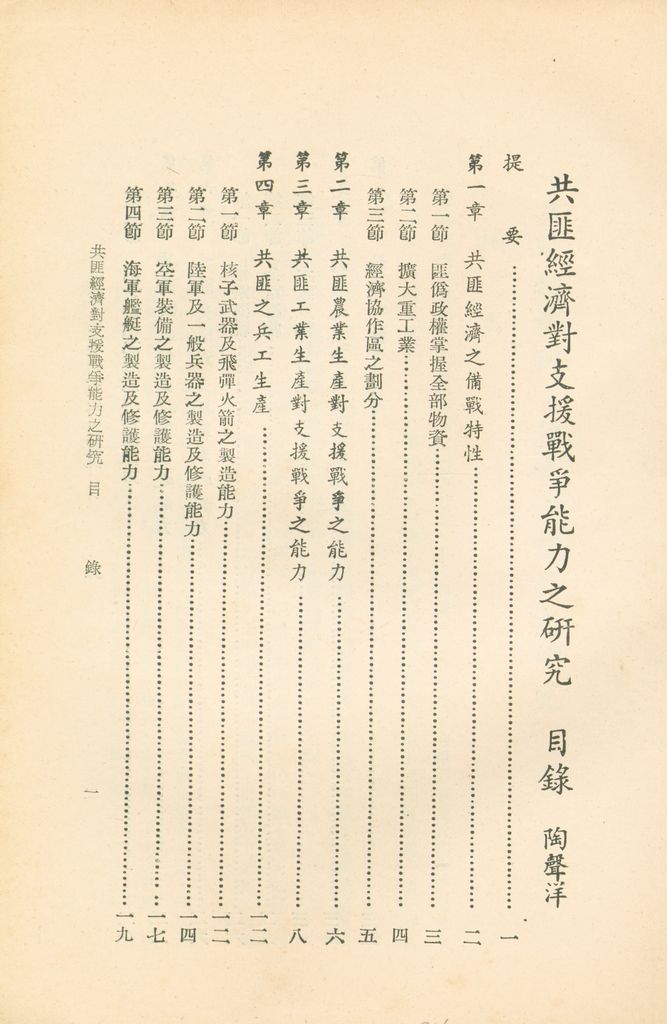 共匪經濟對支援戰爭能力之研究　目錄　陶聲洋
提　要…………一
第一章　共匪經濟之備戰特性…………二
第一節　匪僞政權掌握全部物資…………三
第二節　擴大重工業…………四
第三節　經濟協作區之劃分…………五
第二章　共匪農業生產對支援戰爭之能力…………六
第三章　共匪工業生產對支援戰爭之能力…………八
第四章　共匪之兵工生產…………一二
第一節　核子武器及飛彈火箭之製造能力…………一二
第二節　陸軍及一般兵器之製造及修護能力…………一四
第三節　空軍裝備之製造及修護能力…………一七
第四節　海軍艦艇之製造及修護能力…………一九
共匪經濟對支援戰爭能力之研究　目　錄　一